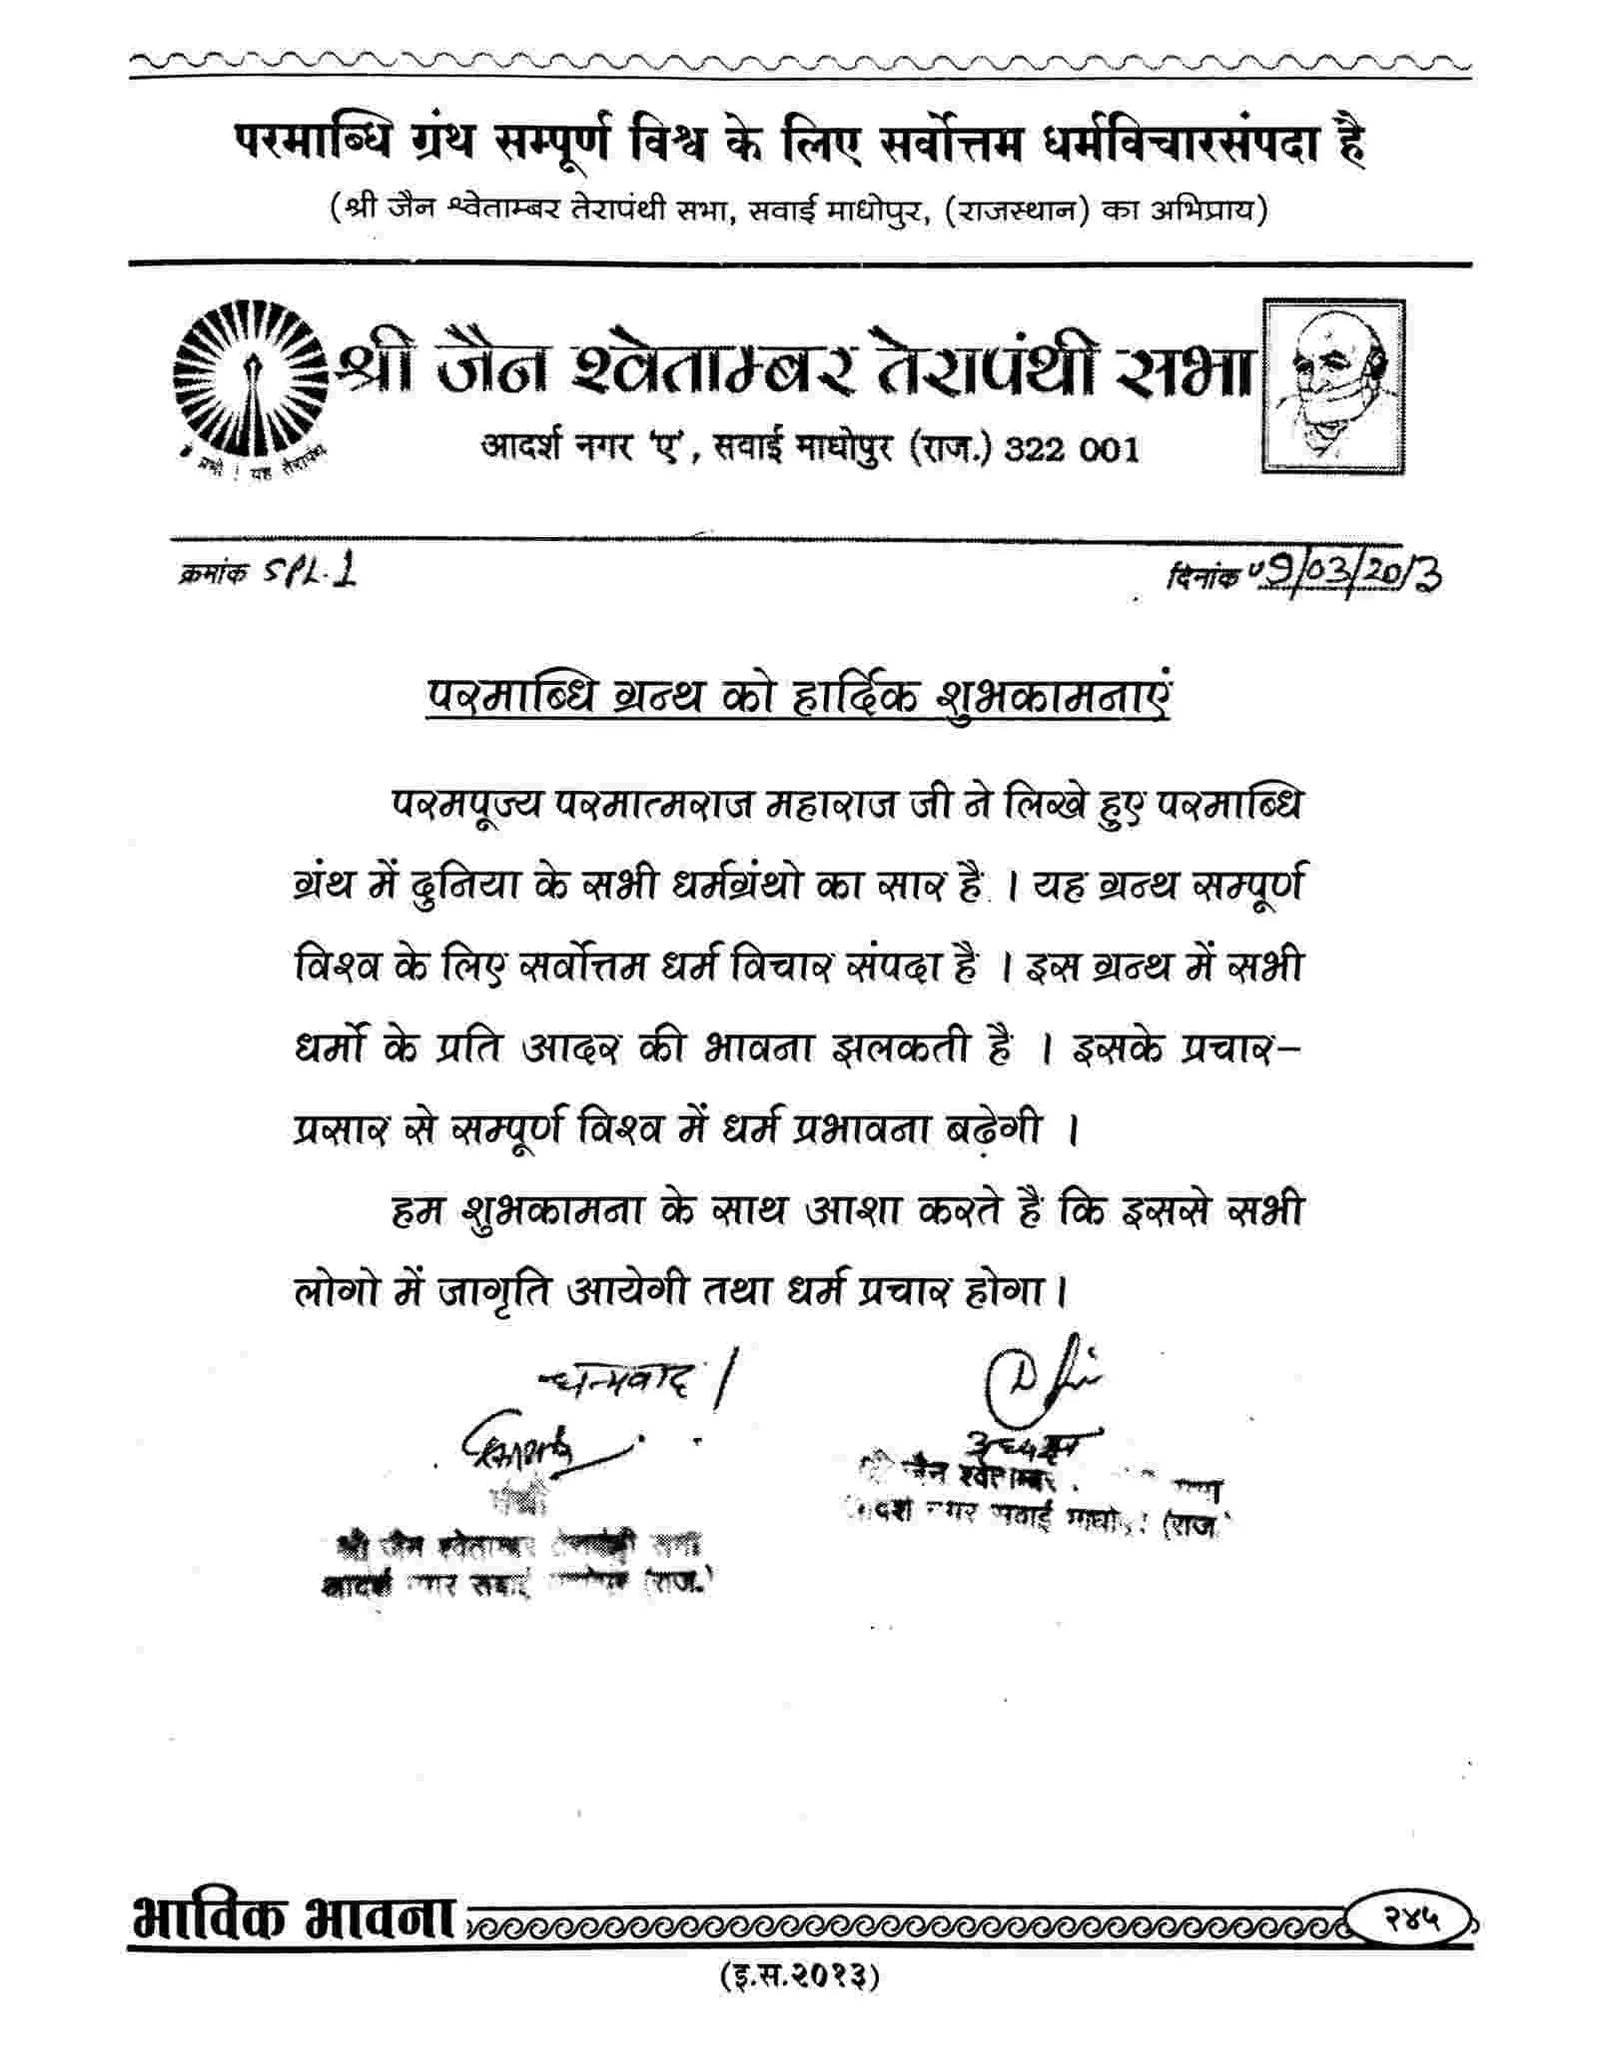 परमाब्धि ग्रंथ सम्पूर्ण विश्व के लिए सर्वोत्तम धर्मविचारसंपदा है
(श्री जैन श्वेताम्बर तेरापंथी सभा, सवाई माधोपुर, (राजस्थान) का अभिप्राय)
श्री जैन श्वेताम्बर तेरापंथी सभा
आदर्श नगर 'ए', सवाई माधोपुर (राज.) 322 001
प्रभो ! यह तेरापंथ
क्रमांक SPL.1
दिनांक 09/03/2013
परमाब्धि ग्रन्थ को हार्दिक शुभकामनाएं
परमपूज्य परमात्मराज महाराज जी ने लिखे हुए परमाब्धि
ग्रंथ में दुनिया के सभी धर्मग्रंथो का सार है । यह ग्रन्थ सम्पूर्ण
विश्व के लिए सर्वोत्तम धर्म विचार संपदा है । इस ग्रन्थ में सभी
धर्मो के प्रति आदर की भावना झलकती है । इसके प्रचार-
प्रसार से सम्पूर्ण विश्व में धर्म प्रभावना बढ़ेगी ।
हम शुभकामना के साथ आशा करते है कि इससे सभी
लोगो में जागृति आयेगी तथा धर्म प्रचार होगा।
धन्यवाद ।
अध्यक्ष
जैन श्वेताम्बर
सवाई (राज
मंत्री
श्री जैन श्वेताम्बर तेरापंथी सभा
आदर्श नगर सवाई (राज.)
भाविक भावना
२४५
(इ.स.२०१३)